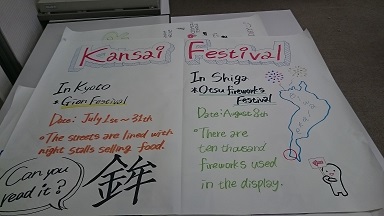 Kansai Festival
In Kyoto
*Gion Festival
Date: July 1st~31th
*The streets are lined with
night stalls selling food.
Can you
read it?
鉾
In Shiga
*Otsu fireworks
Festival
Date: August 8th
*There are
ten thousand
fireworks used
in the display.